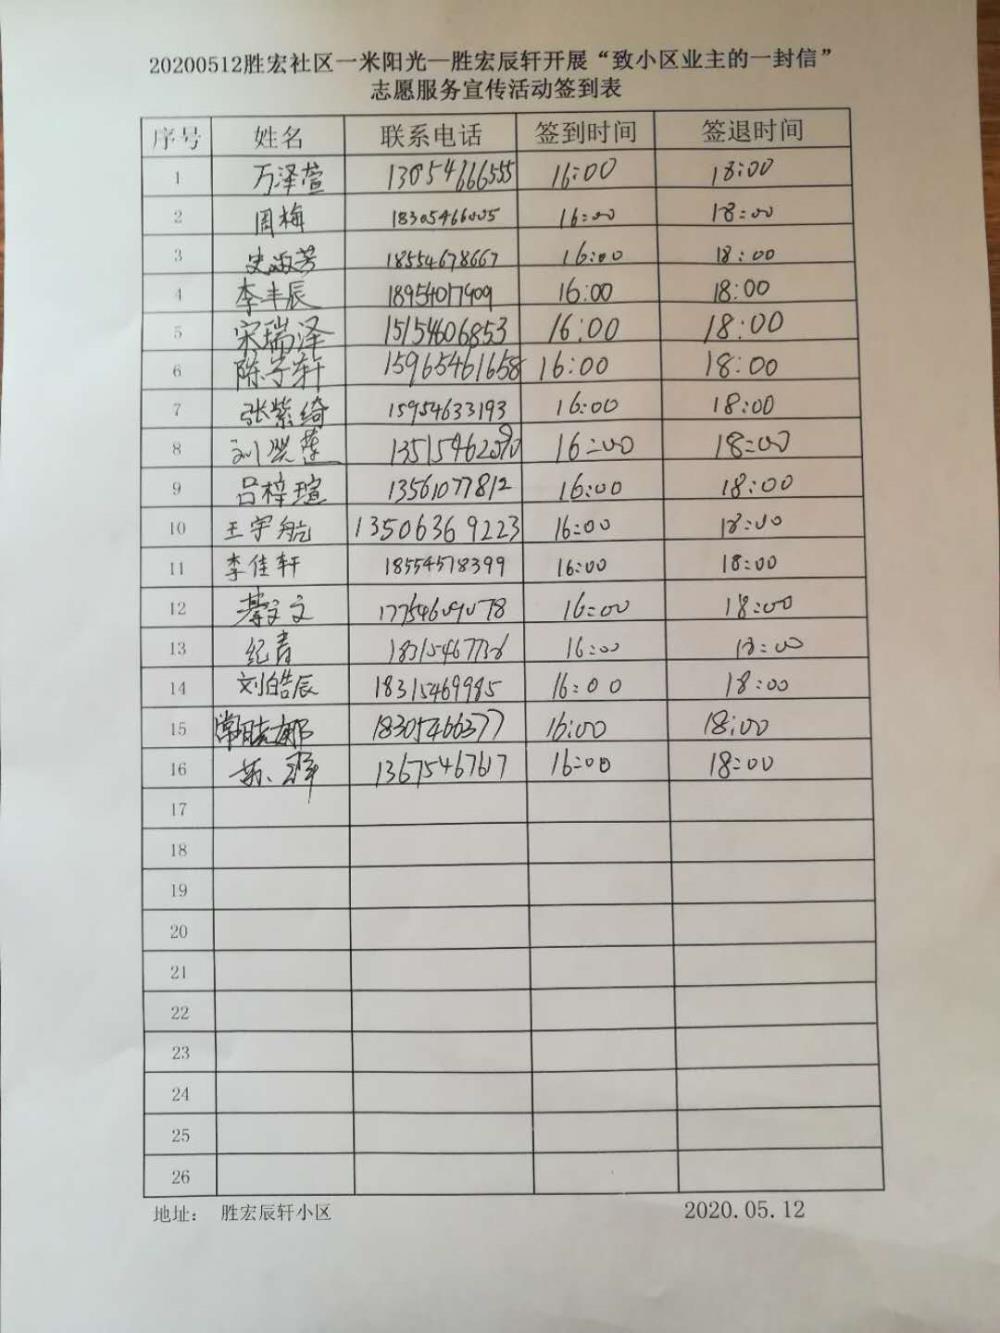 20200512胜宏社区一米阳光—胜宏辰轩开展“致小区业主的一封信”
志愿服务宣传活动签到表
序号 姓名 联系电话 签到时间 签退时间
1 万泽萱 13054666555 16:00 18:00
2 周梅 18305466005 16:00 18:00
3 史淑芳 18554678667 16:00 18:00
4 李丰辰 18954017909 16:00 18:00
5 宋瑞泽 15154606853 16:00 18:00
6 陈子轩 15965461658 16:00 18:00
7 张紫绮 15954633193 16:00 18:00
8 16:00 18:00
9 吕梓瑄 13561077812 16:00 18:00
10 王宇航 13506369223 16:00 18:00
11 李佳轩 18554518399 16:00 18:00
12 綦文文 17754609078 16:00 18:00
13 纪青 16:00 18:00
14 刘皓辰 18315469985 16:00 18:00
15 常晓娜 18305466377 16:00 18:00
16 13675467617 16:00 18:00
17
18
19
20
21
22
23
24
25
26
地址： 胜宏辰轩小区 2020.05.12